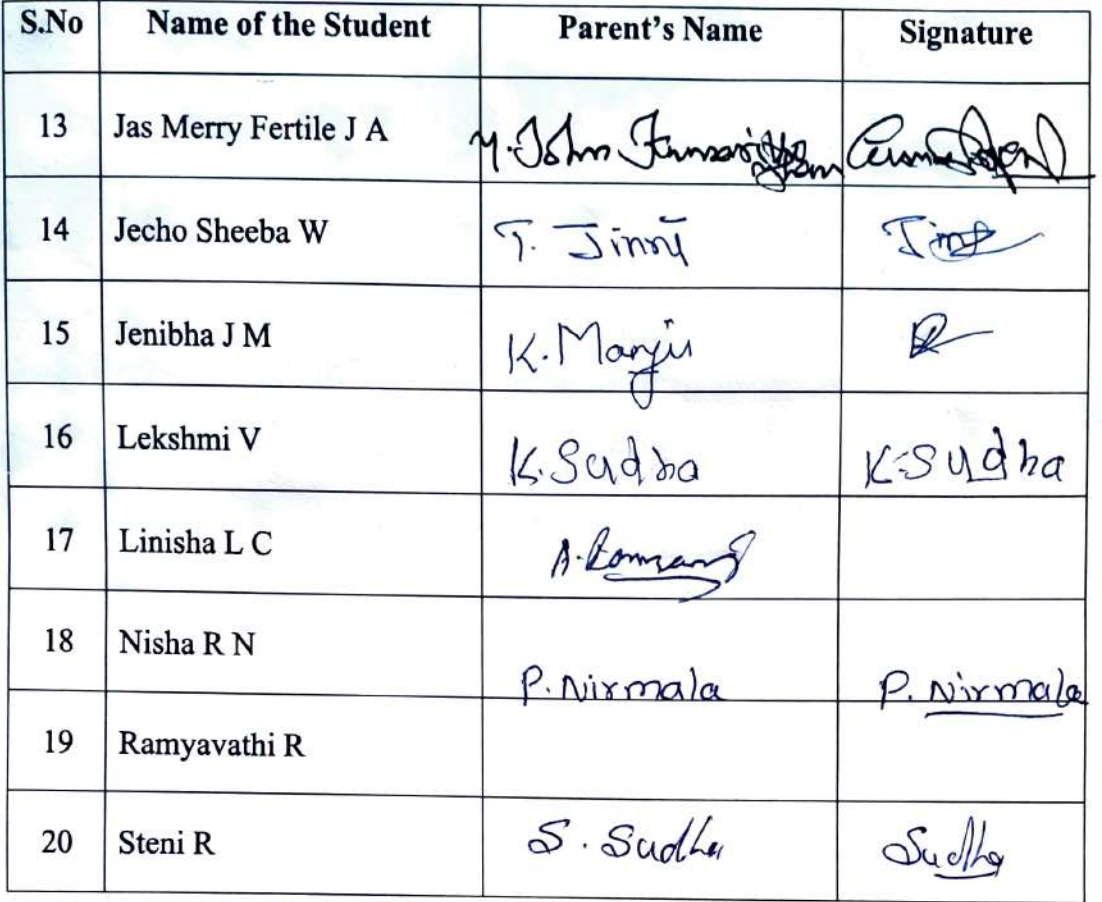 S.No Name of the Student Parent's Name Signature
13 Jas Merry Fertile J A Y. John
14 Jecho Sheeba W T. Jinny
15 Jenibha J M K. Manju
16 Lekshmi V K. Sudha K. Sudha
17 Linisha L C A.
18 Nisha R N P. Nirmala P. Nirmala
19 Ramyavathi R
20 Steni R S. Sudha Sudha